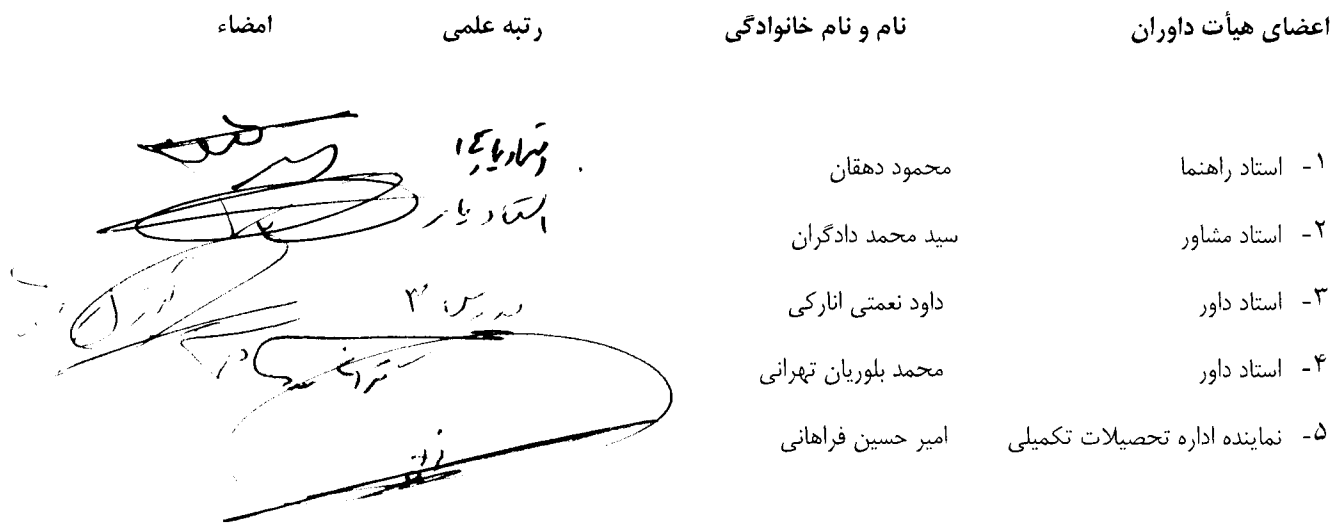 اعضای هیأت داوران نام و نام خانوادگی رتبه علمی امضاء
۱- استاد راهنما محمود دهقان
۲- استاد مشاور سید محمد دادگران استادیار
۳- استاد داور داود نعمتی انارکی
۴- استاد داور محمد بلوریان تهرانی
۵- نماینده اداره تحصیلات تکمیلی امیر حسین فراهانی